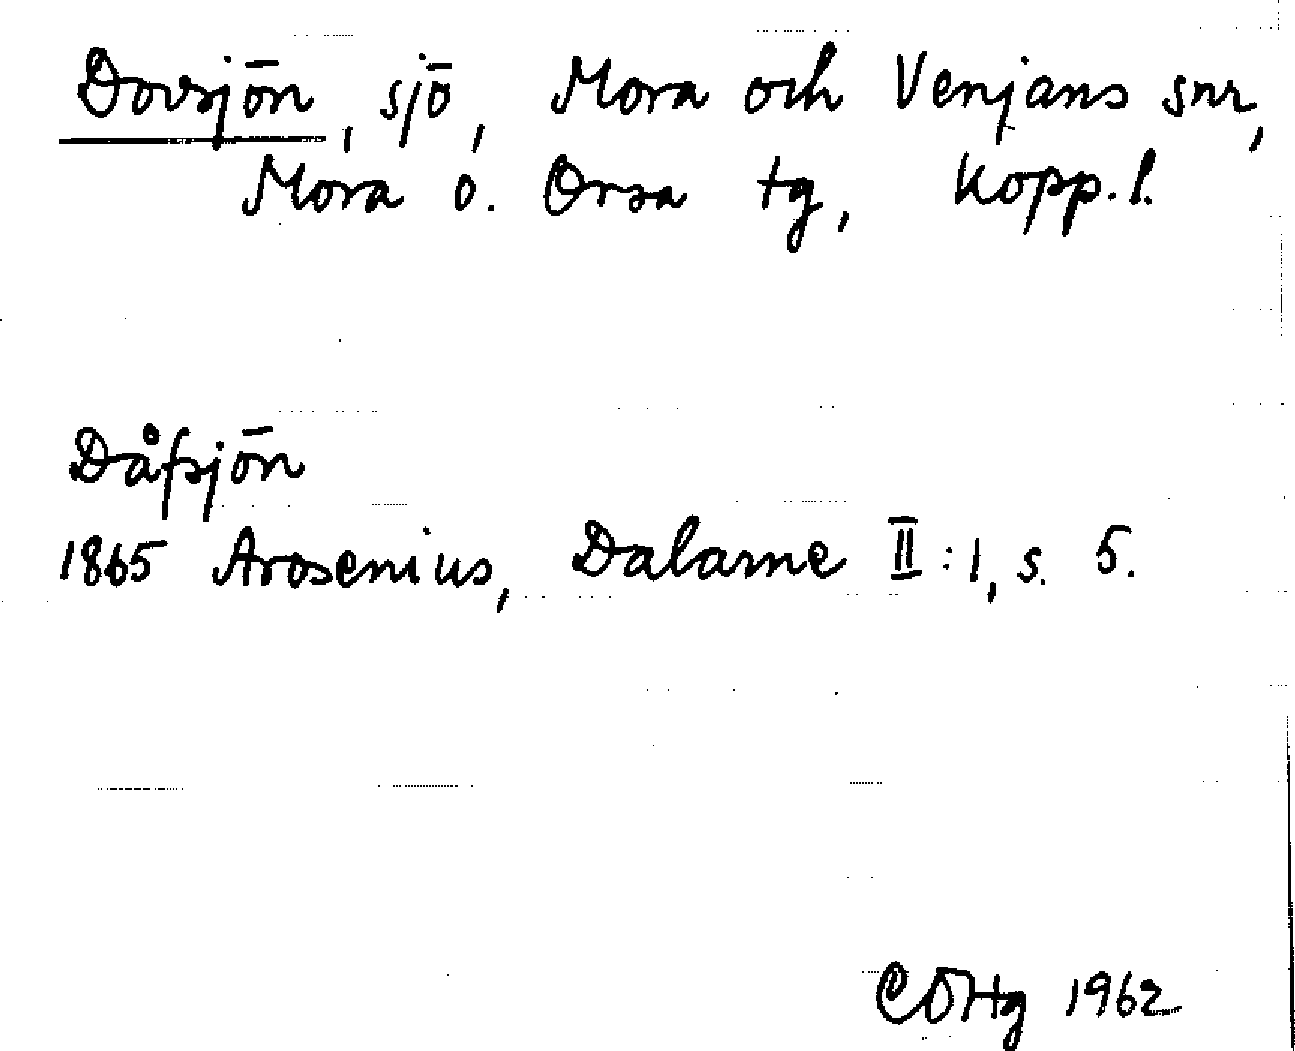 Dovsjön, sjö, Mora och Venjans snr,
Mora o. Orsa tg, Kopp. l.
Dåfsjön
1865 Arosenius, Dalarne II:1, s. 5.
CÖHg 1962